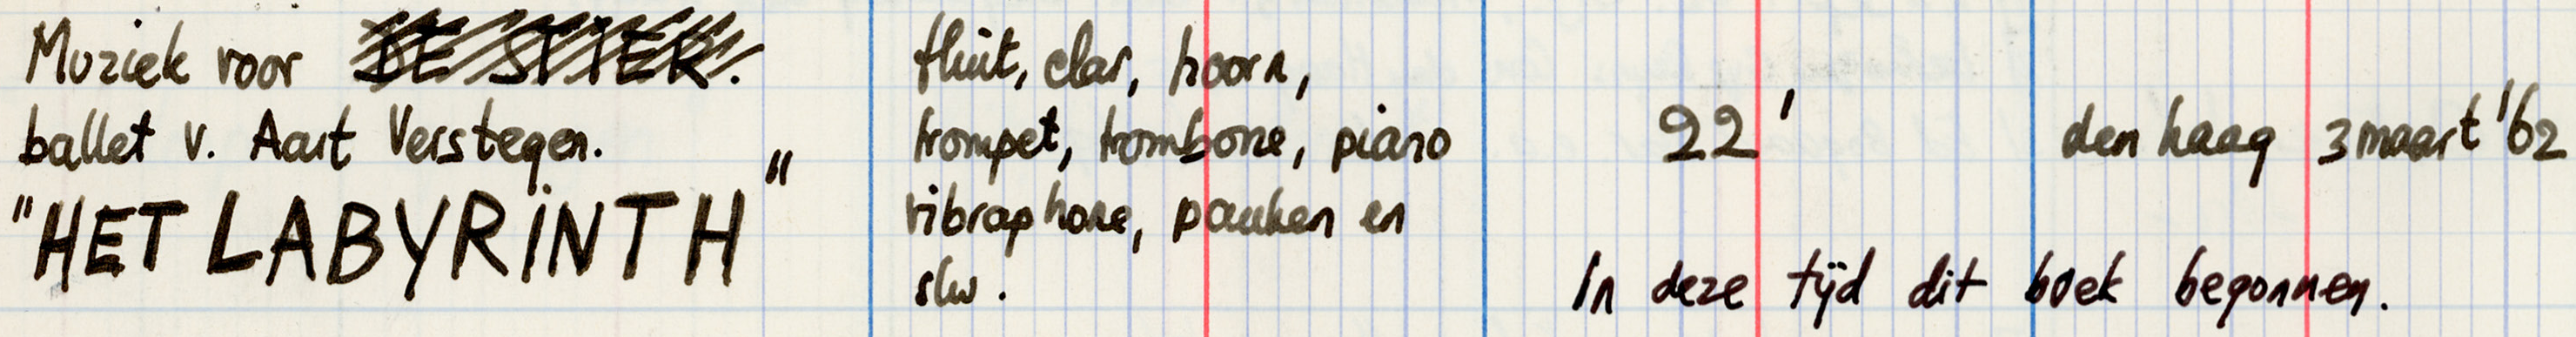 Muziek voor DE STIER.
ballet v. Aart Verstegen.
"HET LABYRINTH"
fluit, clar, hoorn,
trompet, trombone, piano
vibraphone, pauken en
slw.
22'
den haag 3 maart '62
In deze tijd dit boek begonnen.